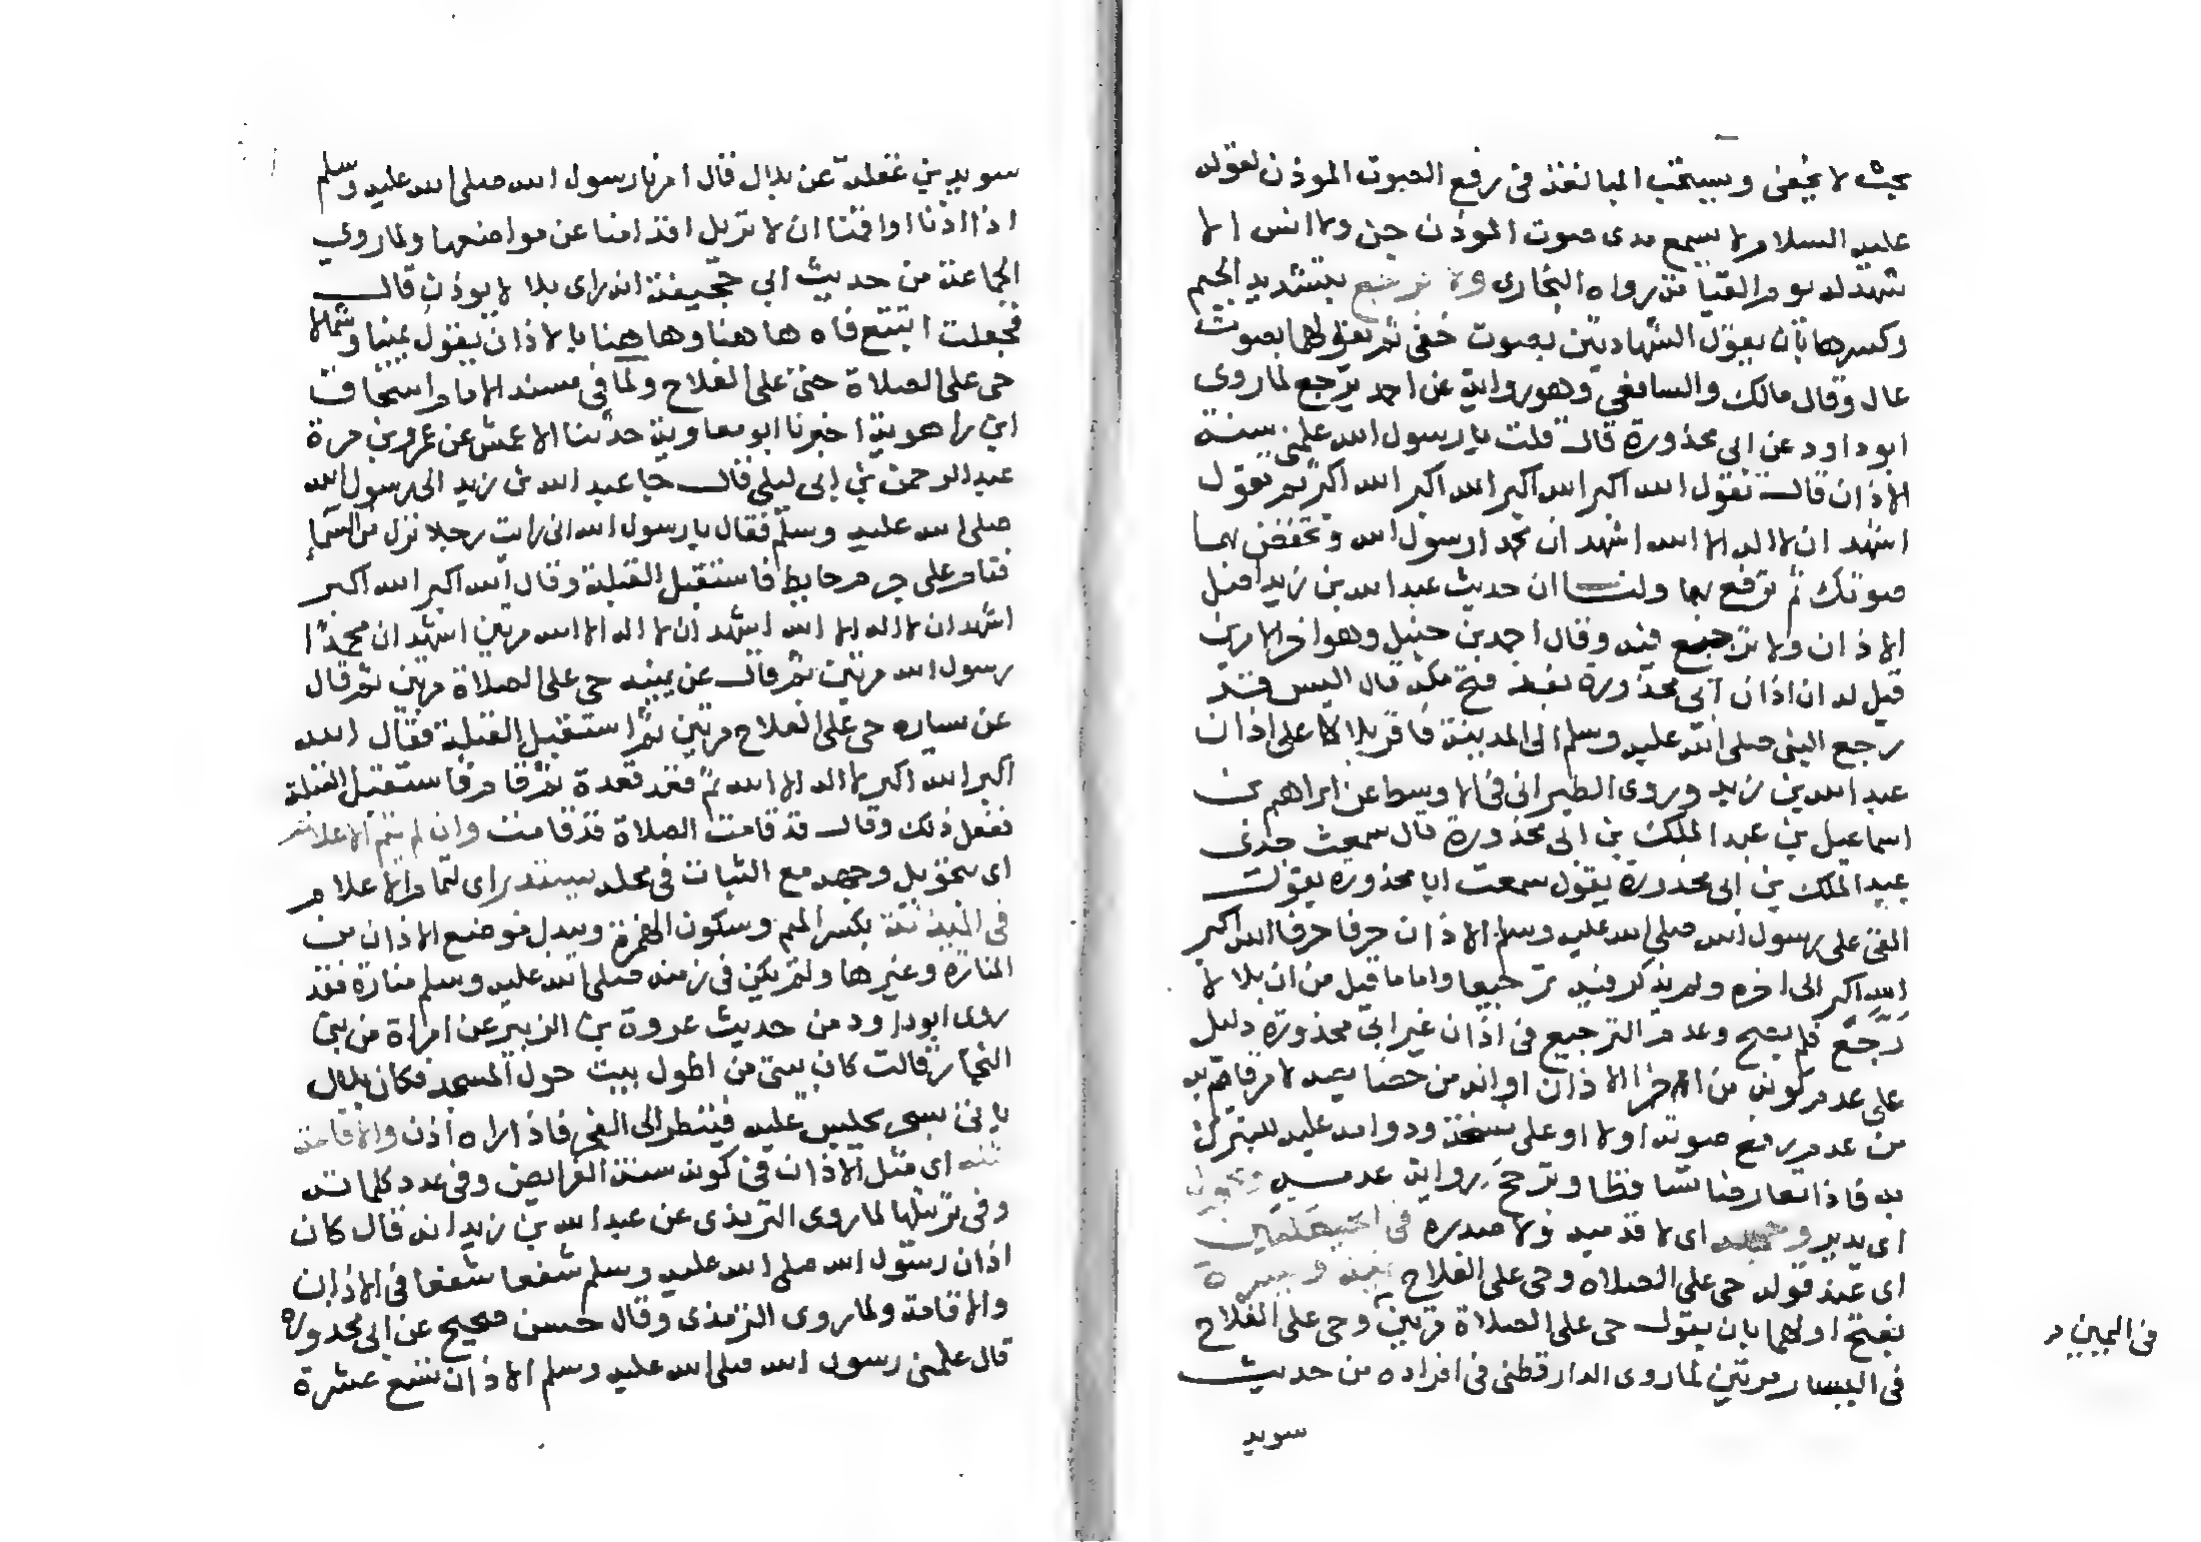 بحيث لا يخفى ويستحب المبالغة في رفع الصوت الموذن لقوله
عليه السلام لا يسمع مدى صوت الموذن جن ولا انس الا
شهد له يوم القيامة رواه البخاري ولا ترجيع بتشديد الجيم
وكسرها بان يقول الشهادتين بصوت خفى ثم يقولهما بصوت
عال وقال مالك والشافعي وهو رواية عن احمد يرجع لما روى
ابو داود عن ابى محذورة قال قلت يا رسول الله علمنى سنة
الاذان قال تقول الله اكبر الله اكبر الله اكبر الله اكبر ثم تقول
اشهد ان لا اله الا الله اشهد ان محمدا رسول الله وتخفض بهما
صوتك ثم ترفع بهما ولنا ان حديث عبد الله بن زيد اصل
الاذان ولا ترجيع فيه وقال احمد بن حنبل وهو اخر الامرين
قيل له ان اذان ابى محذورة بعد فتح مكة قال اليس قد
رجع النبى صلى الله عليه وسلم الى المدينة فاقر بلالا على اذان
عبد الله بن زيد وروى الطبرانى فى الاوسط عن ابراهيم بن
اسماعيل بن عبد الملك بن ابى محذورة قال سمعت جدى
عبد الملك بن ابى محذورة يقول سمعت ابا محذورة يقول
القى على رسول الله صلى الله عليه وسلم الاذان حرفا حرفا الله اكبر
الله اكبر الى اخره ولم يذكر فيه ترجيعا واما ما قيل من ان بلالا لا
رجع فلم يصح وعدم الترجيع فى اذان غير ابى محذورة دليل
على عدم كونه من الاذان او انه من خصا يصه لامر قام به
من عدم رفع صوته اولا او على نسخة ودوامه عليه للتبرك
به فاذا تعارضا تساقطا وترجح رواية عدمه ويحول
اى يدير وجهه اى لا قدميه ولا صدره فى الحيعلتين
اى عند قوله حى على الصلاه وحى على الفلاح يمنة ويسرة
بفتح اولهما بان يقول حى على الصلاة مرتين وحى على الفلاح
فى اليسار مرتين لما روى الدارقطنى فى افراده من حديث
سويد
فى اليمين م
سويد بن غفلة عن بلال قال امرنا رسول الله صلى الله عليه وسلم
اذا اذنا او اقمنا ان لا نزيل اقدامنا عن مواضعها ولما روي
الجماعة من حديث ابى جحيفة انه راى بلالا يوذن قال
فجعلت اتتبع فاه ها هنا وها هنا بالاذان يقول يمينا وشمالا
حى على الصلاة حى على الفلاح ولما فى مسند الامام اسحاق
ابن راهوية اخبرنا ابو معاوية حدثنا الاعمش عن عمرو بن مرة
عبد الرحمن بن ابى ليلى قال جا عبد الله بن زيد الى رسول الله
صلى الله عليه وسلم فقال يا رسول الله انى رايت رجلا نزل من السماء
فقام على جرم حايط فاستقبل القبلة وقال الله اكبر الله اكبر
اشهد ان لا اله الا الله اشهد ان لا اله الا الله مرتين اشهد ان محمدا
رسول الله مرتين ثم قال عن يمينه حى على الصلاة مرتين ثم قال
عن يساره حى على الفلاح مرتين ثم استقبل القبلة فقال الله
اكبر الله اكبر لا اله الا الله ثم قعد قعدة ثم قام فاستقبل القبلة
ففعل ذلك وقال قد قامت الصلاة قد قامت وان لم يتم الاعلام
اى بتحويل وجهه مع الثبات فى محله يستدير اى لتمام الاعلام
فى الميذنة بكسر الميم وسكون الهمزة وبدل موضع الاذان من
المنارة وغيرها ولم يكن فى زمنه صلى الله عليه وسلم منارة فقد
روى ابو داود من حديث عروة بن الزبير عن امراة من بنى
النجار قالت كان بيتى من اطول بيت حول المسجد فكان بلال
ياتى بسحر يجلس عليه فينظر الى الفجر فاذا راه اذن والاقامة
مثله اى مثل الاذان فى كونه سنة الفرايض وفى عدد كلماته
وفى ترتيلها لما روى الترمذى عن عبد الله بن زيد انه قال كان
اذان رسول الله صلى الله عليه وسلم شفعا شفعا فى الاذان
والاقامة ولما روى الترمذى وقال حسن صحيح عن ابى محذورة
قال علمنى رسول الله صلى الله عليه وسلم الاذان تسع عشرة